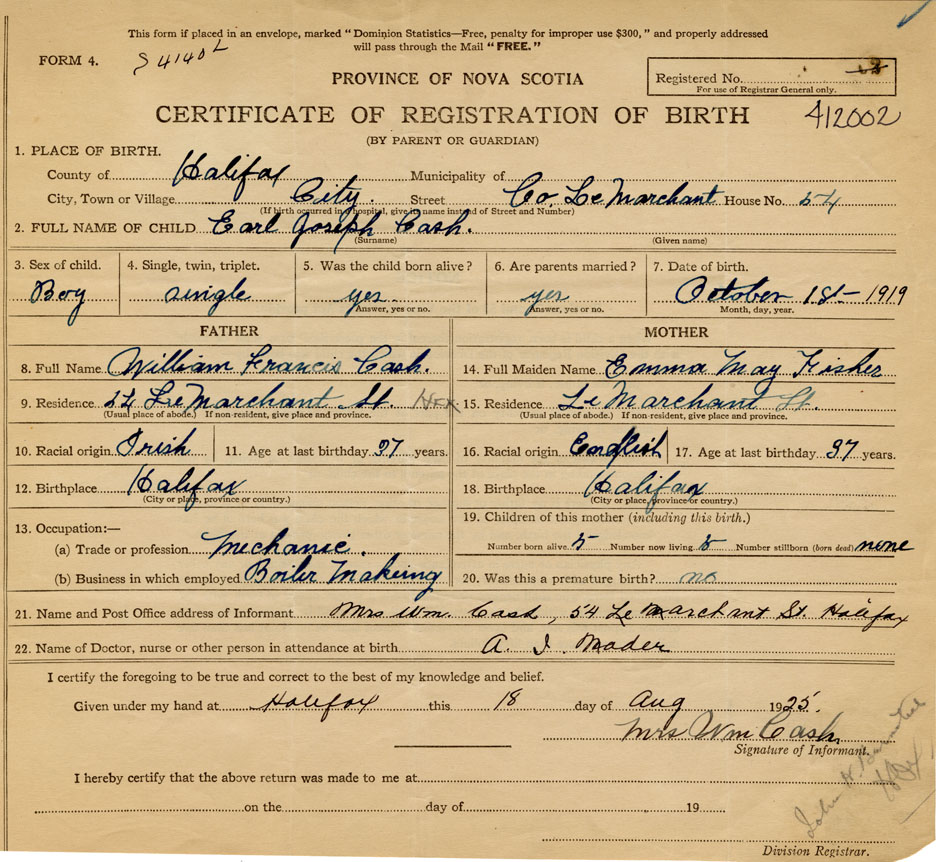 This form if placed in an envelope, marked "Dominion Statistics—Free, penalty for improper use $300," and properly addressed
will pass through the Mail "FREE."
FORM 4. S 4140 L
PROVINCE OF NOVA SCOTIA
Registered No.
For use of Registrar General only.
CERTIFICATE OF REGISTRATION OF BIRTH 412002
(BY PARENT OR GUARDIAN)
1. PLACE OF BIRTH.
County of Halifax Municipality of
City, Town or Village City. Street Co. Le Marchant House No. 54
(If birth occurred in a hospital, give its name instead of Street and Number)
2. FULL NAME OF CHILD Earl Joseph Cash.
(Surname) (Given name)
3. Sex of child. 4. Single, twin, triplet. 5. Was the child born alive? 6. Are parents married? 7. Date of birth.
Boy single yes. yes October 1st 1919
Answer, yes or no. Answer, yes or no. Month, day, year.
FATHER MOTHER
8. Full Name William Francis Cash. 14. Full Maiden Name Emma May Fisher
9. Residence 54 Le Marchant St. Hfx 15. Residence Le Marchant St.
(Usual place of abode.) If non-resident, give place and province. (Usual place of abode.) If non-resident, give place and province.
10. Racial origin Irish 11. Age at last birthday 37 years. 16. Racial origin English 17. Age at last birthday 37 years.
12. Birthplace Halifax 18. Birthplace Halifax
(City or place, province or country.) (City or place, province or country.)
13. Occupation:— 19. Children of this mother (including this birth.)
(a) Trade or profession Mechanic. Number born alive 5 Number now living 5 Number stillborn (born dead) none
(b) Business in which employed Boiler Makeing 20. Was this a premature birth? no
21. Name and Post Office address of Informant Mrs Wm Cash, 54 Le Marchant St. Halifax
22. Name of Doctor, nurse or other person in attendance at birth A. I. Mader
I certify the foregoing to be true and correct to the best of my knowledge and belief.
Given under my hand at Halifax this 18 day of Aug 1925.
Mrs Wm Cash
Signature of Informant.
I hereby certify that the above return was made to me at
on the day of 19
John
Division Registrar.